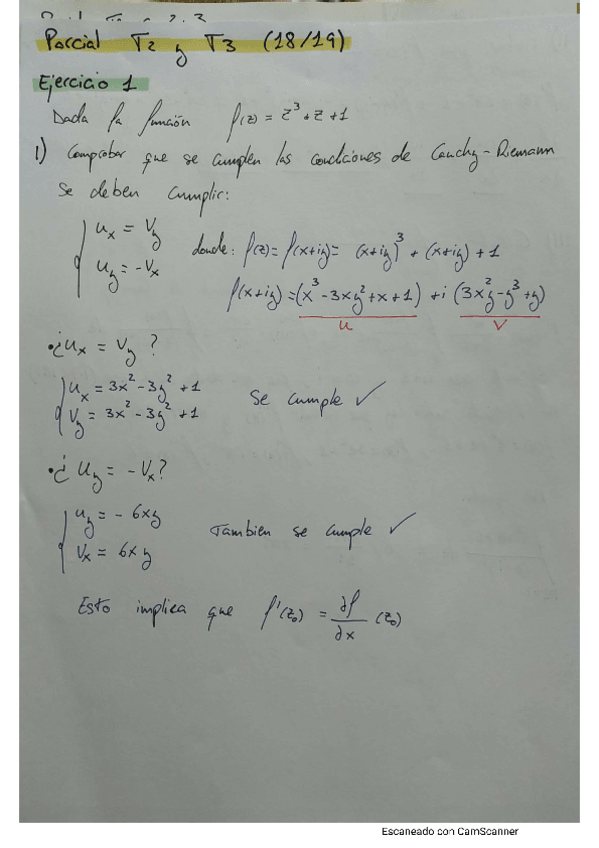 Parcial T2 y T3 (18/19)
Ejercicio 1
Dada la función f(z) = z³ + z + 1
1) Comprobar que se cumplen las condiciones de Cauchy-Riemann
Se deben cumplir:
u_x = v_y
u_y = -v_x
donde: f(z) = f(x+iy) = (x+iy)³ + (x+iy) + 1
f(x+iy) = (x³ - 3xy² + x + 1) + i (3x²y - y³ + y)
u v
• ¿u_x = v_y?
u_x = 3x² - 3y² + 1
v_y = 3x² - 3y² + 1
Se cumple ✓
• ¿u_y = -v_x?
u_y = - 6xy
v_x = 6xy
Tambien se cumple ✓
Esto implica que f'(z₀) = ∂f/∂x (z₀)
Escaneado con CamScanner